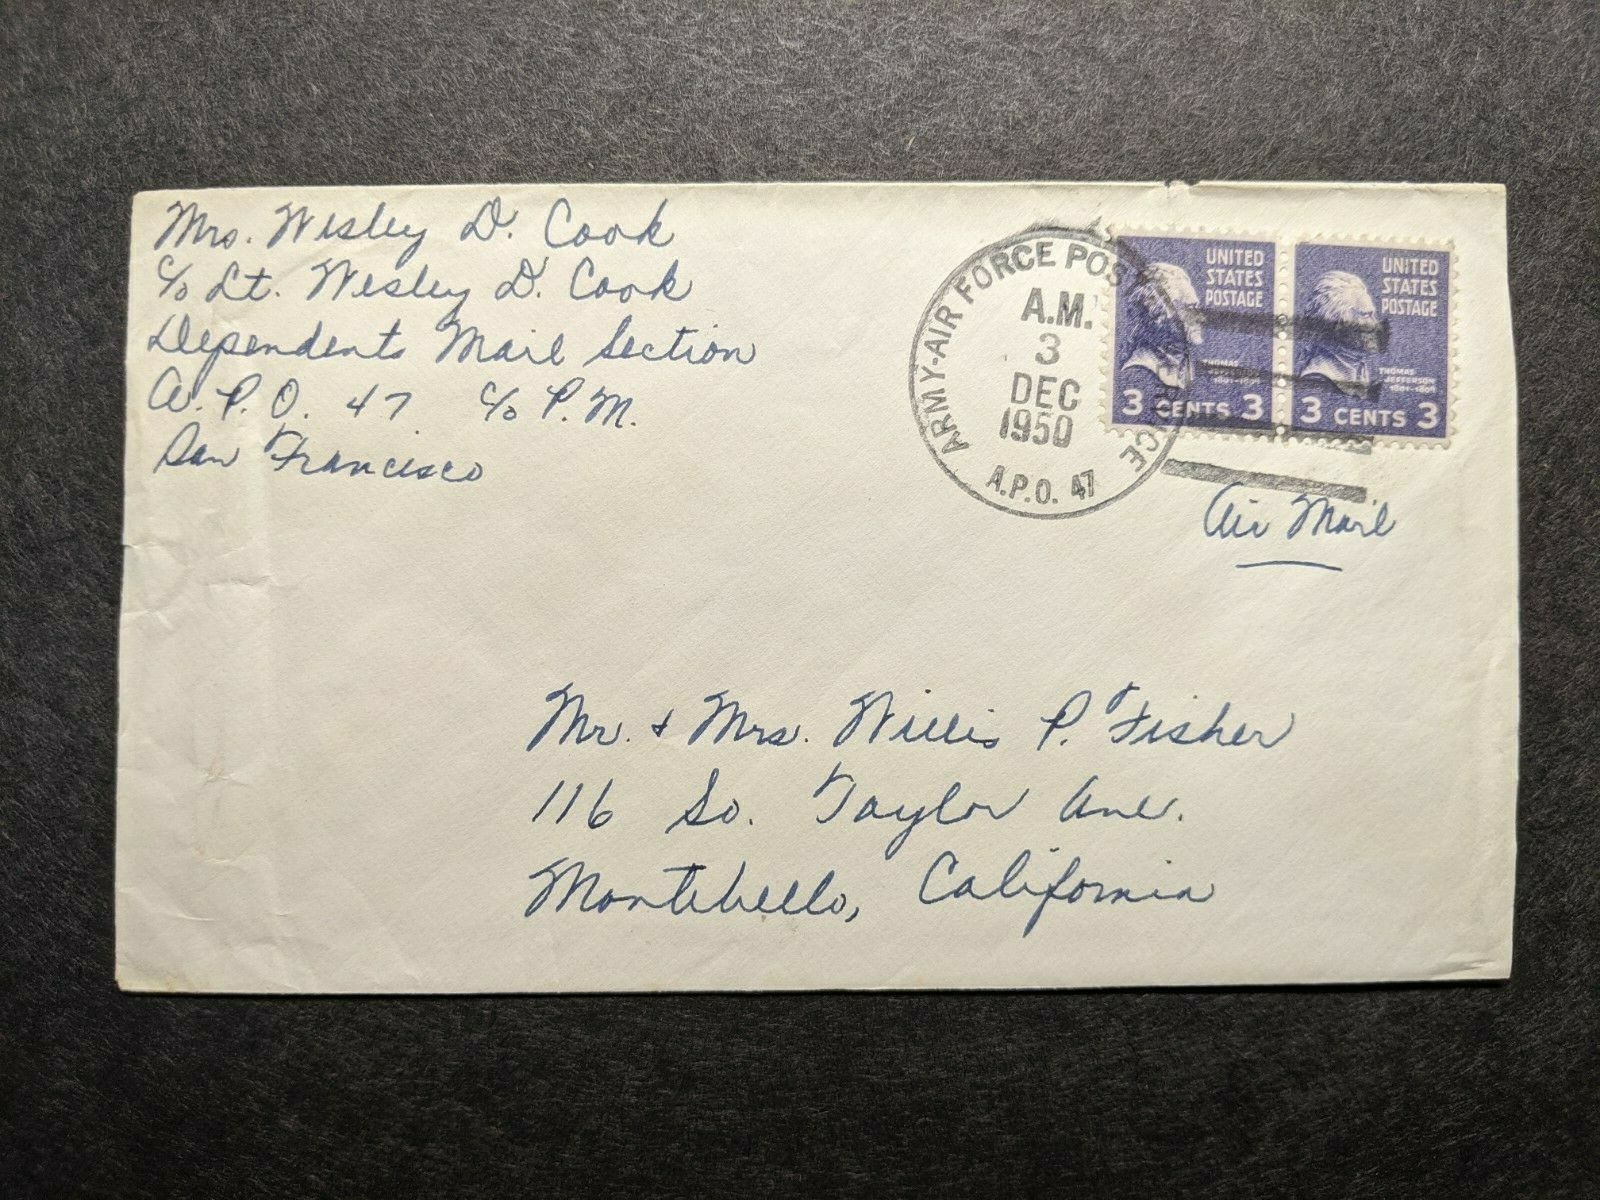 Mrs. Wesley D. Cook
c/o Lt. Wesley D. Cook
Dependents Mail Section
A.P.O. 47 c/o P.M.
San Francisco
ARMY-AIR FORCE POSTAL SERVICE
A.M.
3
DEC
1950
A.P.O. 47
UNITED
STATES
POSTAGE
THOMAS
JEFFERSON
1801-1809
3 CENTS 3
UNITED
STATES
POSTAGE
THOMAS
JEFFERSON
1801-1809
3 CENTS 3
Air Mail
Mr. & Mrs. Willis P. Fisher
116 So. Taylor Ave.
Montebello, California